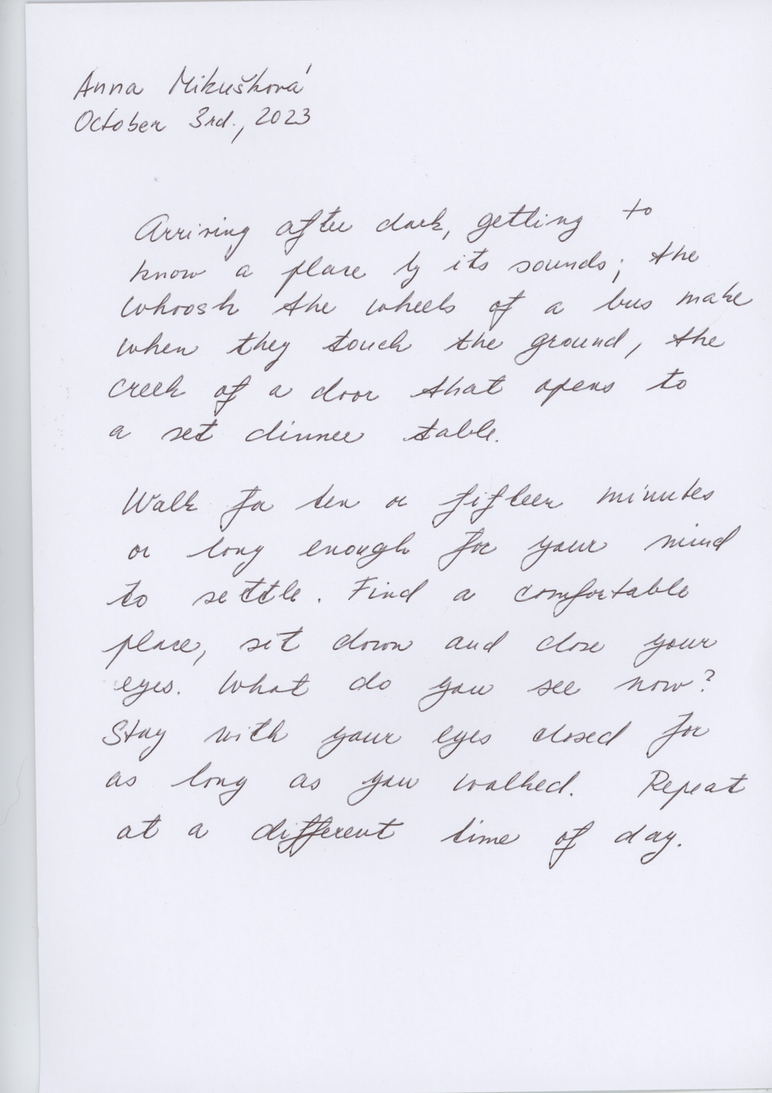 Anna Mikušková
October 3rd., 2023
Arriving after dark, getting to
know a place by its sounds; the
whoosh the wheels of a bus make
when they touch the ground, the
creek of a door that opens to
a set dinner table.
Walk for ten or fifteen minutes
or long enough for your mind
to settle. Find a comfortable
place, sit down and close your
eyes. What do you see now?
Stay with your eyes closed for
as long as you walked. Repeat
at a different time of day.